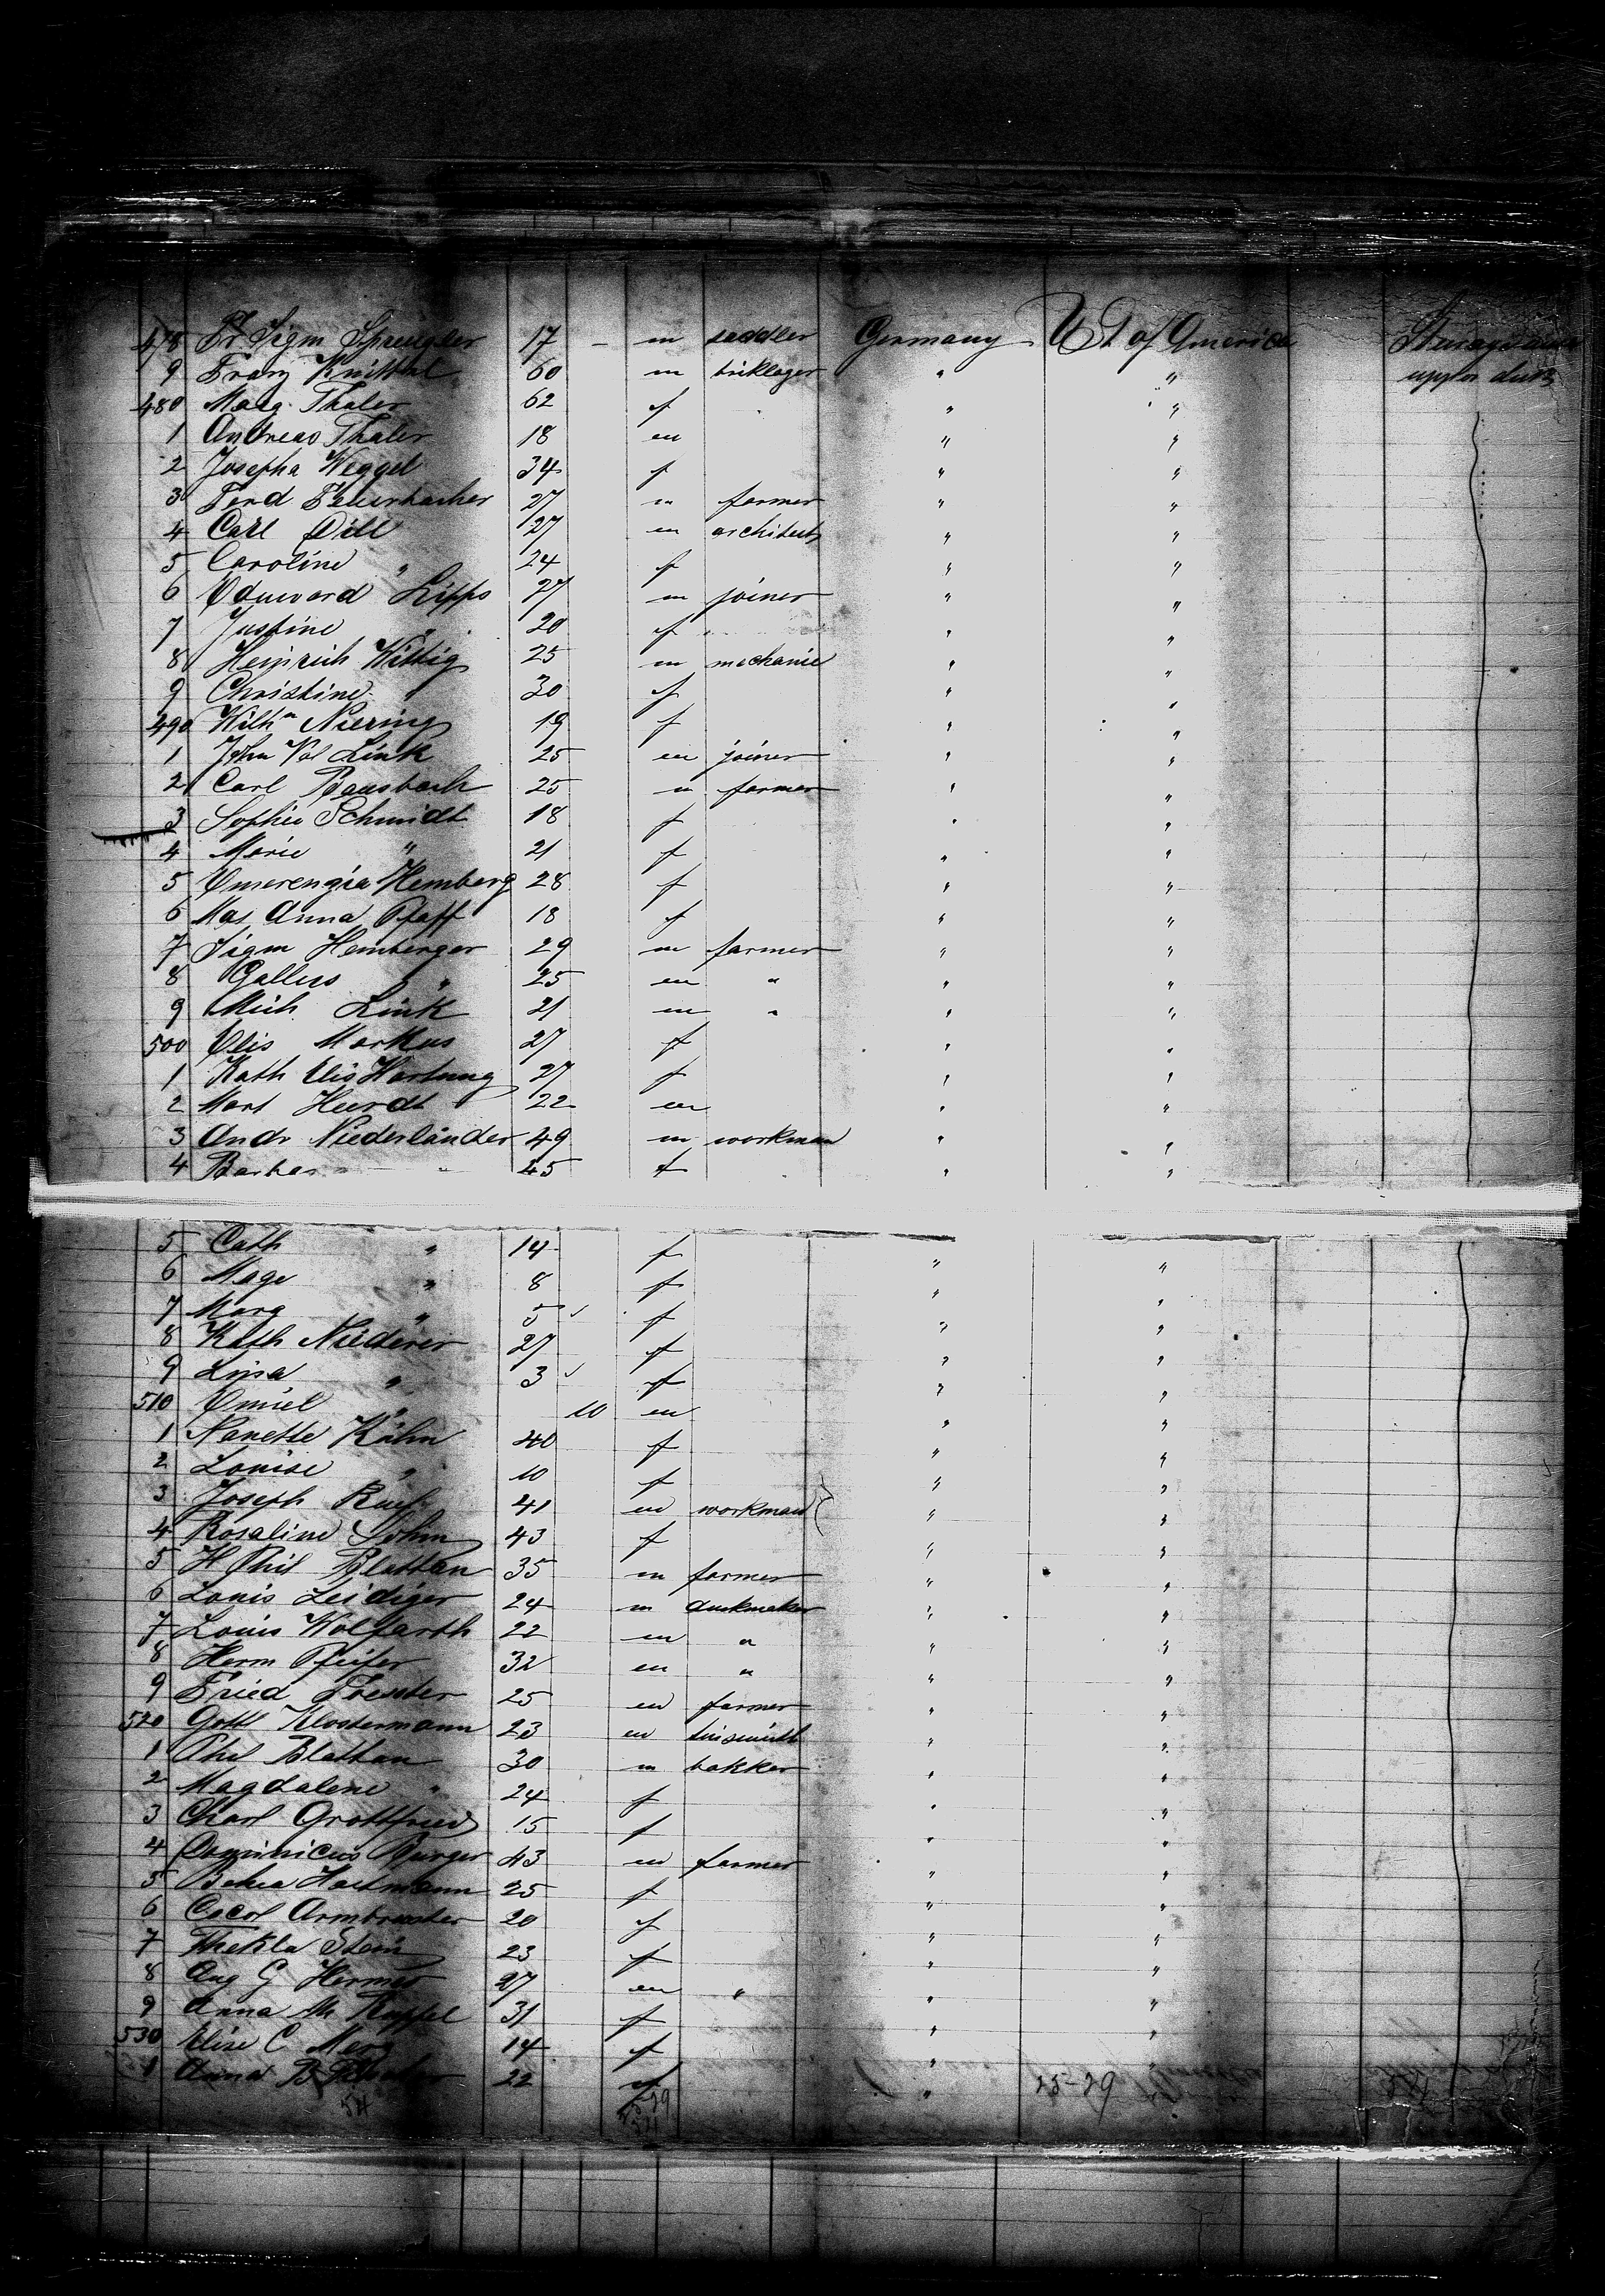 478 Fr Sigm Spreigler 17 - m saddler Germany U St of America Steerage
9 Franz Knittel 60 m briklager " " upper deck
480 Marg. Thaler 62 f " "
1 Andreas Thaler 18 m " "
2 Josepha Weggel 34 f " "
3 Ferd Feuerbacher 27 m farmer " "
4 Carl Dill 27 m architect " "
5 Caroline " 24 f " "
6 Eduward Lipps 27 m joiner " "
7 Justine " 20 f " "
8 Heinrich Wittig 25 m mechanic " "
9 Christine " 30 f " "
490 Wilhm Niering 19 f " "
1 John Val Link 25 m joiner " "
2 Carl Bausbach 25 m farmer " "
3 Sophie Schmidt 18 f " "
4 Marie " 21 f " "
5 Emerenzia Hemberg 28 f " "
6 Mar Anna Pfaff 18 f " "
7 Sigm Hemberger 29 m farmer " "
8 Gallus " 25 m " " "
9 Mich Link 21 m " " "
500 Elis Markus 27 f " "
1 Kath Elis Hartung 27 f " "
2 Mart Hurdt 22 m " "
3 Andr Niederländer 49 m workman " "
4 Barbar " 45 f " "
5 Cath " 14 f " "
6 Mage " 8 f " "
7 Marg " 5 f " "
8 Kath Niederer 27 f " "
9 Lina " 3 f " "
510 Emiel " 10 m " "
1 Nanette Kühn 40 f " "
2 Louise " 10 f " "
3 Joseph Ruef 41 m workman " "
4 Rosaline Sohm 43 f " "
5 H Phil Blattau 35 m farmer " "
6 Louis Leidiger 24 m " "
7 Louis Wolfarth 22 m " " "
8 Herm Pfeifer 32 m " " "
9 Fried Foerster 25 m farmer " "
520 Gottl Klostermann 23 m tinsmith " "
1 Phil Blattau 30 m bakker " "
2 Magdalene " 24 f " "
3 Charl Grottfried 15 f " "
4 Dominicus Burger 43 m farmer " "
5 Hartmann 25 f " "
6 Armbruster 20 f " "
7 Thekla Stein 23 f " "
8 Aug G Hermes 27 m " " "
9 Anna M Kuppel 31 f " "
530 Elise C Merz 14 f " "
1 Anna B 22 f " 25-29
54 54